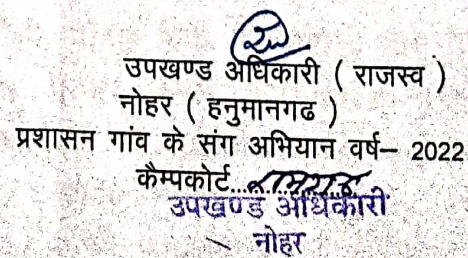 उपखण्ड अधिकारी ( राजस्व )
नोहर ( हनुमानगढ )
प्रशासन गांव के संग अभियान वर्ष– 2022
कैम्पकोर्ट...
उपखण्ड अधिकारी
नोहर